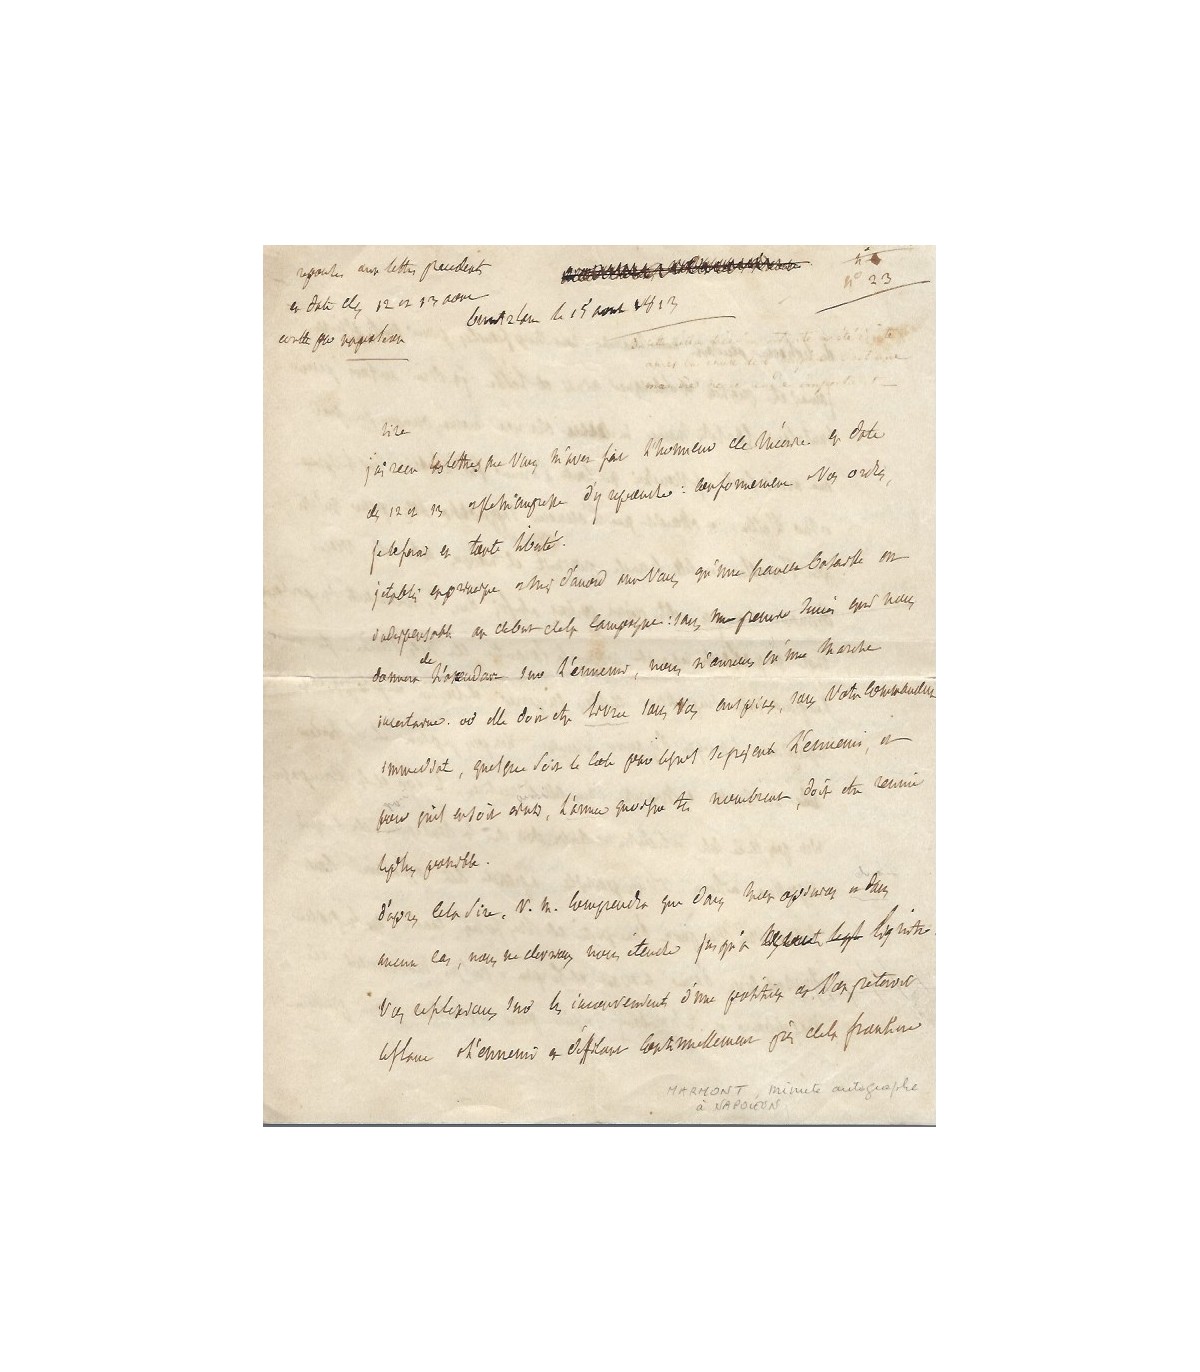 reponses aux lettres precedents
en date des 12 et 13 aout
ecrite par napoleon
n° 23
Buntzlau le 15 aout 1813
Sire
j'ai recu les lettres que Vous m'avez fait l'honneur de m'écrire en date
des 12 et 13 et je m'empresse d'y repondre : conformement a Vos ordres,
je le ferai en toute liberté.
j'etablis en principe et suis d'accord avec Vous qu'une grande bataille est
indispensable au debut de la campagne : sans une premiere qui nous
donnera de l'ascendant sur l'ennemi, nous n'aurions qu'une marche
incertaine. et elle doit etre livrée sous Vos auspices, sous Votre commandement
immediat, quelque soit le coté par lequel se presente l'ennemi, et
pour qu'il en soit ainsi, l'armée quoique tres nombreuse, doit etre reunie
le plus possible.
d'apres cela Sire, V. M. comprendra que dans mon opinion et dans
aucun cas, nous ne devrions nous étendre jusqu'a Lignitz.
Vos reflexions sur les inconvenients d'une position en l'air pretant
le flanc a l'ennemi et défilant continuellement près de la frontiere
MARMONT, minute autographe
à NAPOLÉON